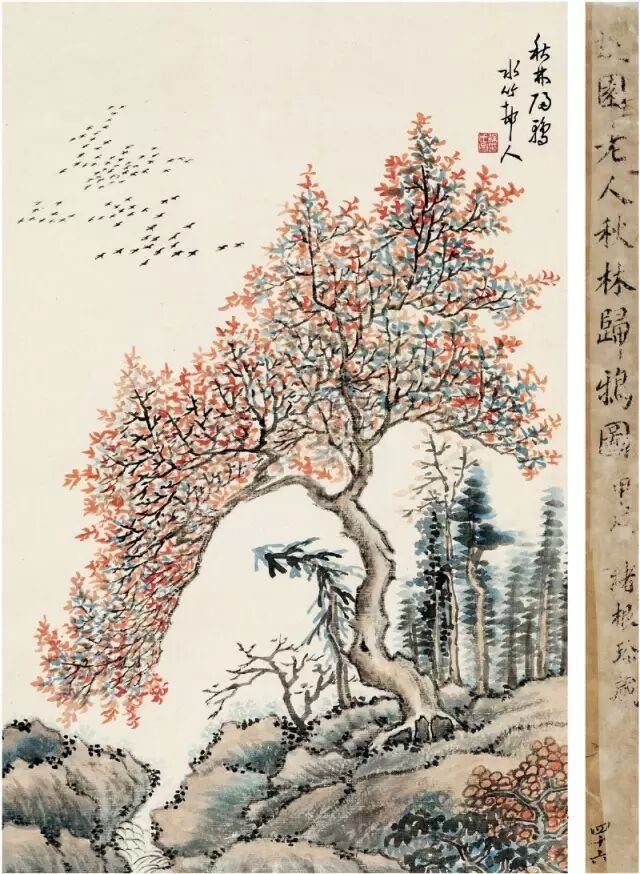 秋林歸鴉
水竹邨人
園老人秋林歸鴉圖
緒根珍藏
四十六